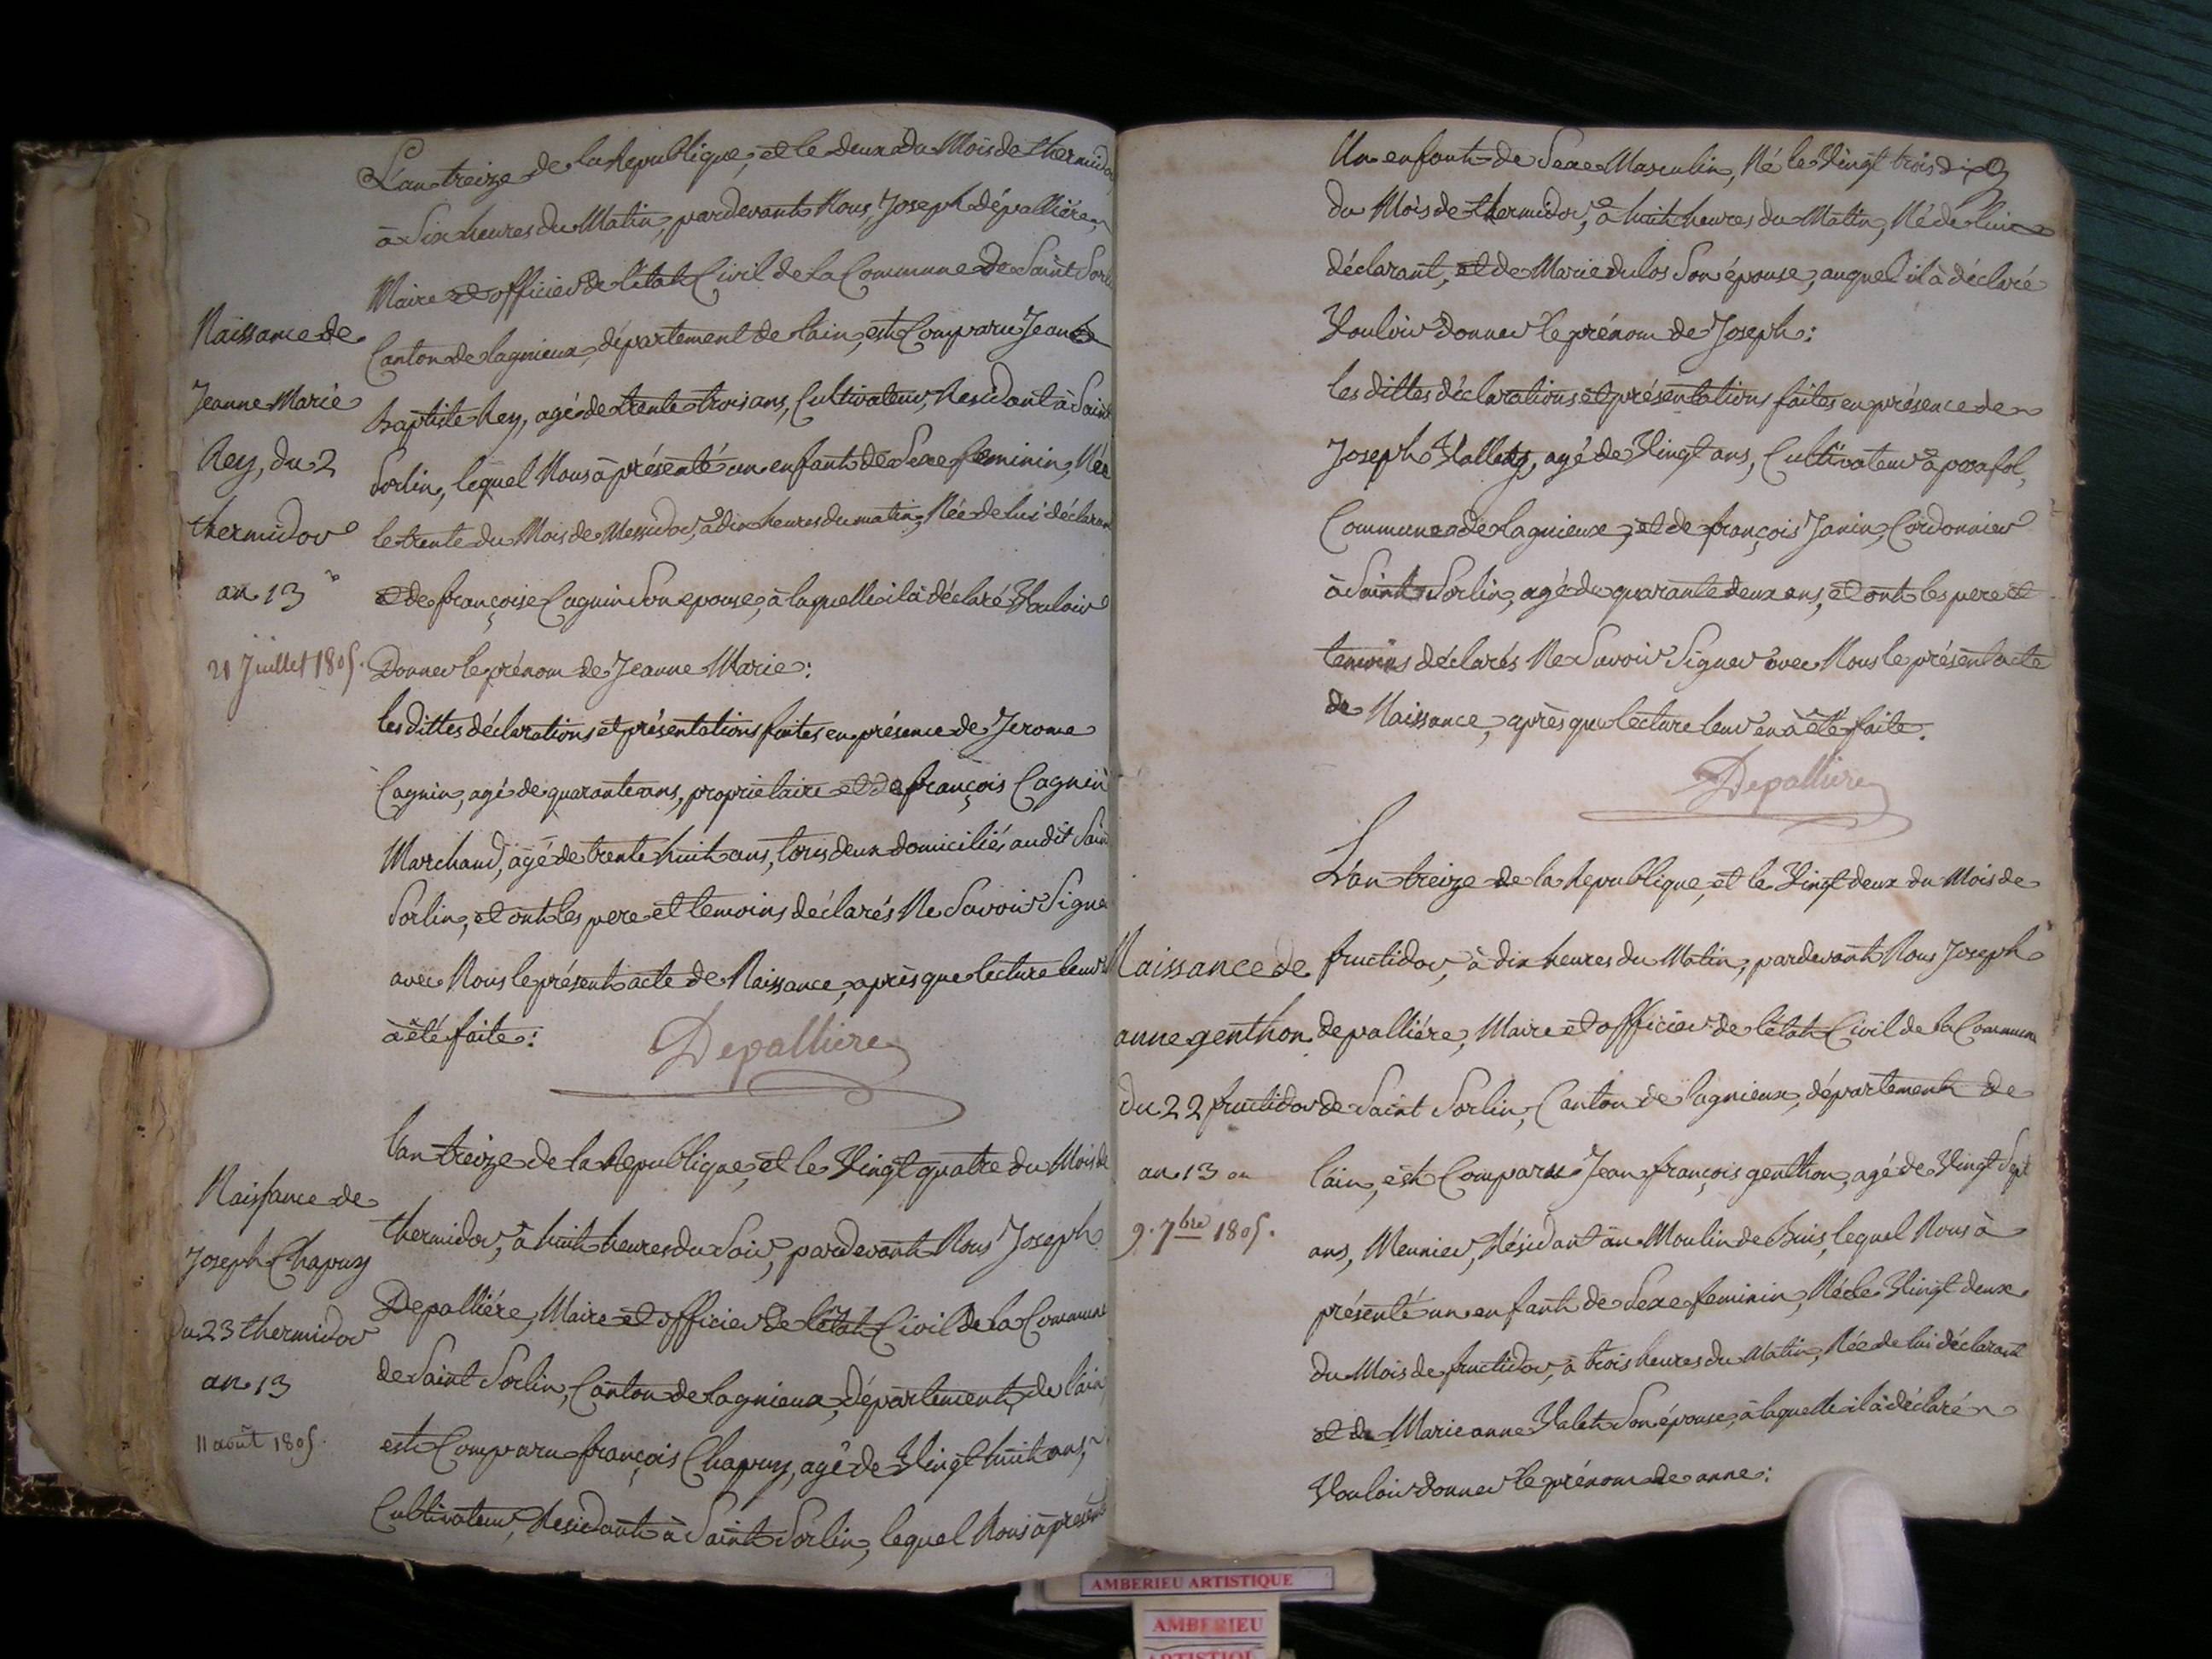 L'an treize de la Republique, et le deux du Mois de thermidor
à Six heures du Matin, pardevant Nous, Joseph dépalliére,
Maire et officier de l'état Civil de la Commune de Saint Sorlin
Naissance de
Canton de lagnieux, département de lain, est Comparu Jean
Jeanne Marie
Baptiste Rey, agé de trente trois ans, Cultivateur, Residant à Saint
Rey, du 2
Sorlin, lequel Nous à présenté un enfant de Sexe feminin, Née
thermidor
le trente du Mois de Messidor, à dix heures du matin, Née de lui déclarant
an 13
et de françoise Cagnin Son epouse, à laquelle il à déclaré Vouloir
21 Juillet 1805.
Donner le prénom de Jeanne Marie:
les dittes déclarations et présentations faites en présence de Jerome
Cagnin, agé de quarante ans, propriétaire et de françois Cagnin
Marchand, agé de trente huit ans, tous deux domiciliés audit Saint
Sorlin, et ont les pere et temoins déclarés Ne Savoir Signer
avec Nous le présent acte de Naissance, après que lecture leur
à été faite:
Depalliere
L'an treize de la Republique, et le Vingt quatre du Mois de
Naissance de
thermidor, à huit heures du Soir, pardevant Nous Joseph
Joseph Chapuy
Depalliére, Maire et officier de l'état Civil de la Commune
du 23 thermidor
de Saint Sorlin, Canton de lagnieux, département de l'ain
an 13
11 août 1805.
est Comparu françois Chapuy, agé de Vingt huit ans,
Cultivateur, Residant à Saint Sorlin, lequel Nous à présenté
Un enfant de Sexe Masculin, Né le Vingt trois dix
du Mois de thermidor, à huit heures du Matin, Né de lui
déclarant, et de Marie dulos Son épouse, auquel il à déclaré
Vouloir donner le prénom de Joseph:
les dittes déclarations et présentations faites en présence de
Joseph, agé de Vingt ans, Cultivateur à posafol,
Commune de lagnieux, et de françois Janin, Cordonnier
à Saint Sorlin, agé de quarante deux ans, et ont les pere et
temoins déclarés Ne Savoir Signer avec Nous le présent acte
de Naissance, après que lecture leur en à été faite.
Depalliere
L'an treize de la Republique, et le Vingt deux du Mois de
Naissance de
fructidor, à dix heures du Matin, pardevant Nous Joseph
anne genthon
depalliére, Maire et officier de l'état Civil de la Commune
du 22 fructidor
de Saint Sorlin, Canton de lagnieux, département de
an 13 ou
lain, est Comparu Jean françois genthon, agé de Vingt Sept
9. 7bre 1805.
ans, Meunier, Résidant au Moulin de Buis, lequel Nous à
présenté un enfant de Sexe feminin, Née le Vingt deux
du Mois de fructidor, à trois heures du Matin, Née de lui déclarant
et de Marie anne Valet Son épouse, à laquelle il à déclaré
Vouloir donner le prénom de anne:
AMBERIEU ARTISTIQUE
AMBERIEU
ARTISTIQUE